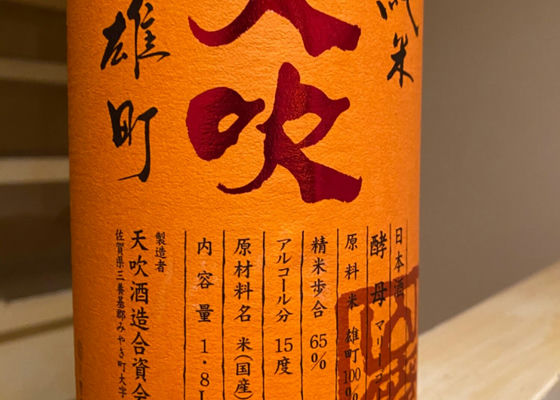 純米
天吹
雄町
日本酒
酵母 マリーゴー
原料米 雄町100%
精米歩合 65%
アルコール分 15度
原材料名 米(国産)
内容量 1.8L
製造者
天吹酒造合資会
佐賀県三養基郡みやき町大字